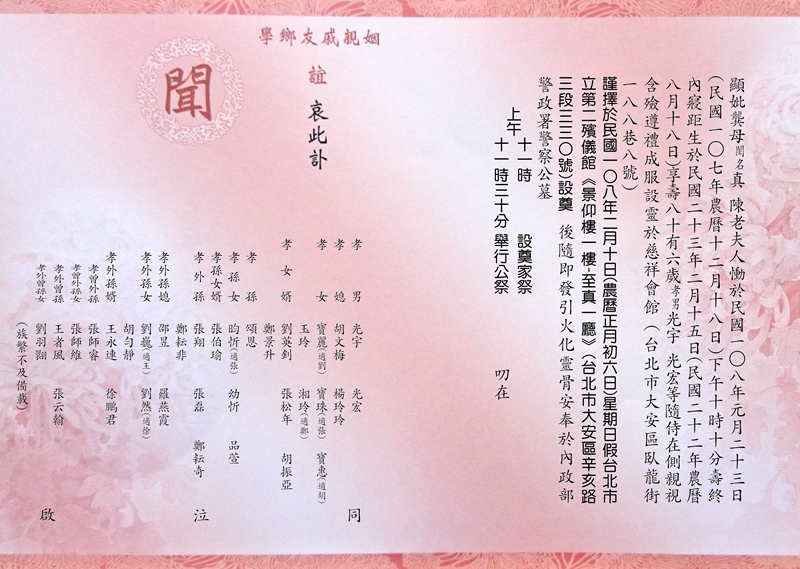 顯妣龔母閨名真 陳老夫人慟於民國一〇八年元月二十三日
(民國一〇七年農曆十二月十八日)下午十時十分壽終
內寢距生於民國二十三年二月十五日(民國二十二年農曆
八月十八日)享壽八十有六歲孝男光宇 光宏等隨侍在側親視
含殮遵禮成服設靈於慈祥會館(台北市大安區臥龍街
一八八巷八號)
謹擇於民國一〇八年二月十日(農曆正月初六日)星期日假台北市
立第二殯儀館《景仰樓一樓-至真一廳》(台北市大安區辛亥路
三段三三〇號)設奠 後隨即發引火化靈骨安奉於內政部
警政署警察公墓
上午 十一時 設奠家祭
十一時三十分 舉行公祭
叨在
姻親戚友鄉學
誼 哀此訃
聞
孝男 光宇 光宏
孝媳 胡文梅 楊玲玲
孝女 寶麗(適劉) 寶珠(適張) 寶惠(適胡)
玉玲 湘玲(適鄭)
孝女婿 劉英釗 張松年 胡振亞
鄭景升
孝孫 頌恩
孝孫女 昀忻(適張) 幼忻 品萱
孝孫女婿 張伯瑜
孝外孫 張翔 張磊 鄭耘奇
鄭耘非
孝外孫媳 邵昱 羅燕霞
孝外孫女 劉巍(適王) 劉然(適徐)
胡勻靜
孝外孫婿 王永連 徐鵬君
孝曾外孫 張師睿
孝曾外孫女 張師維
孝外曾孫 王者風 張云翰
孝外曾孫女 劉羽翾
(族繁不及備載)
同
泣
啟